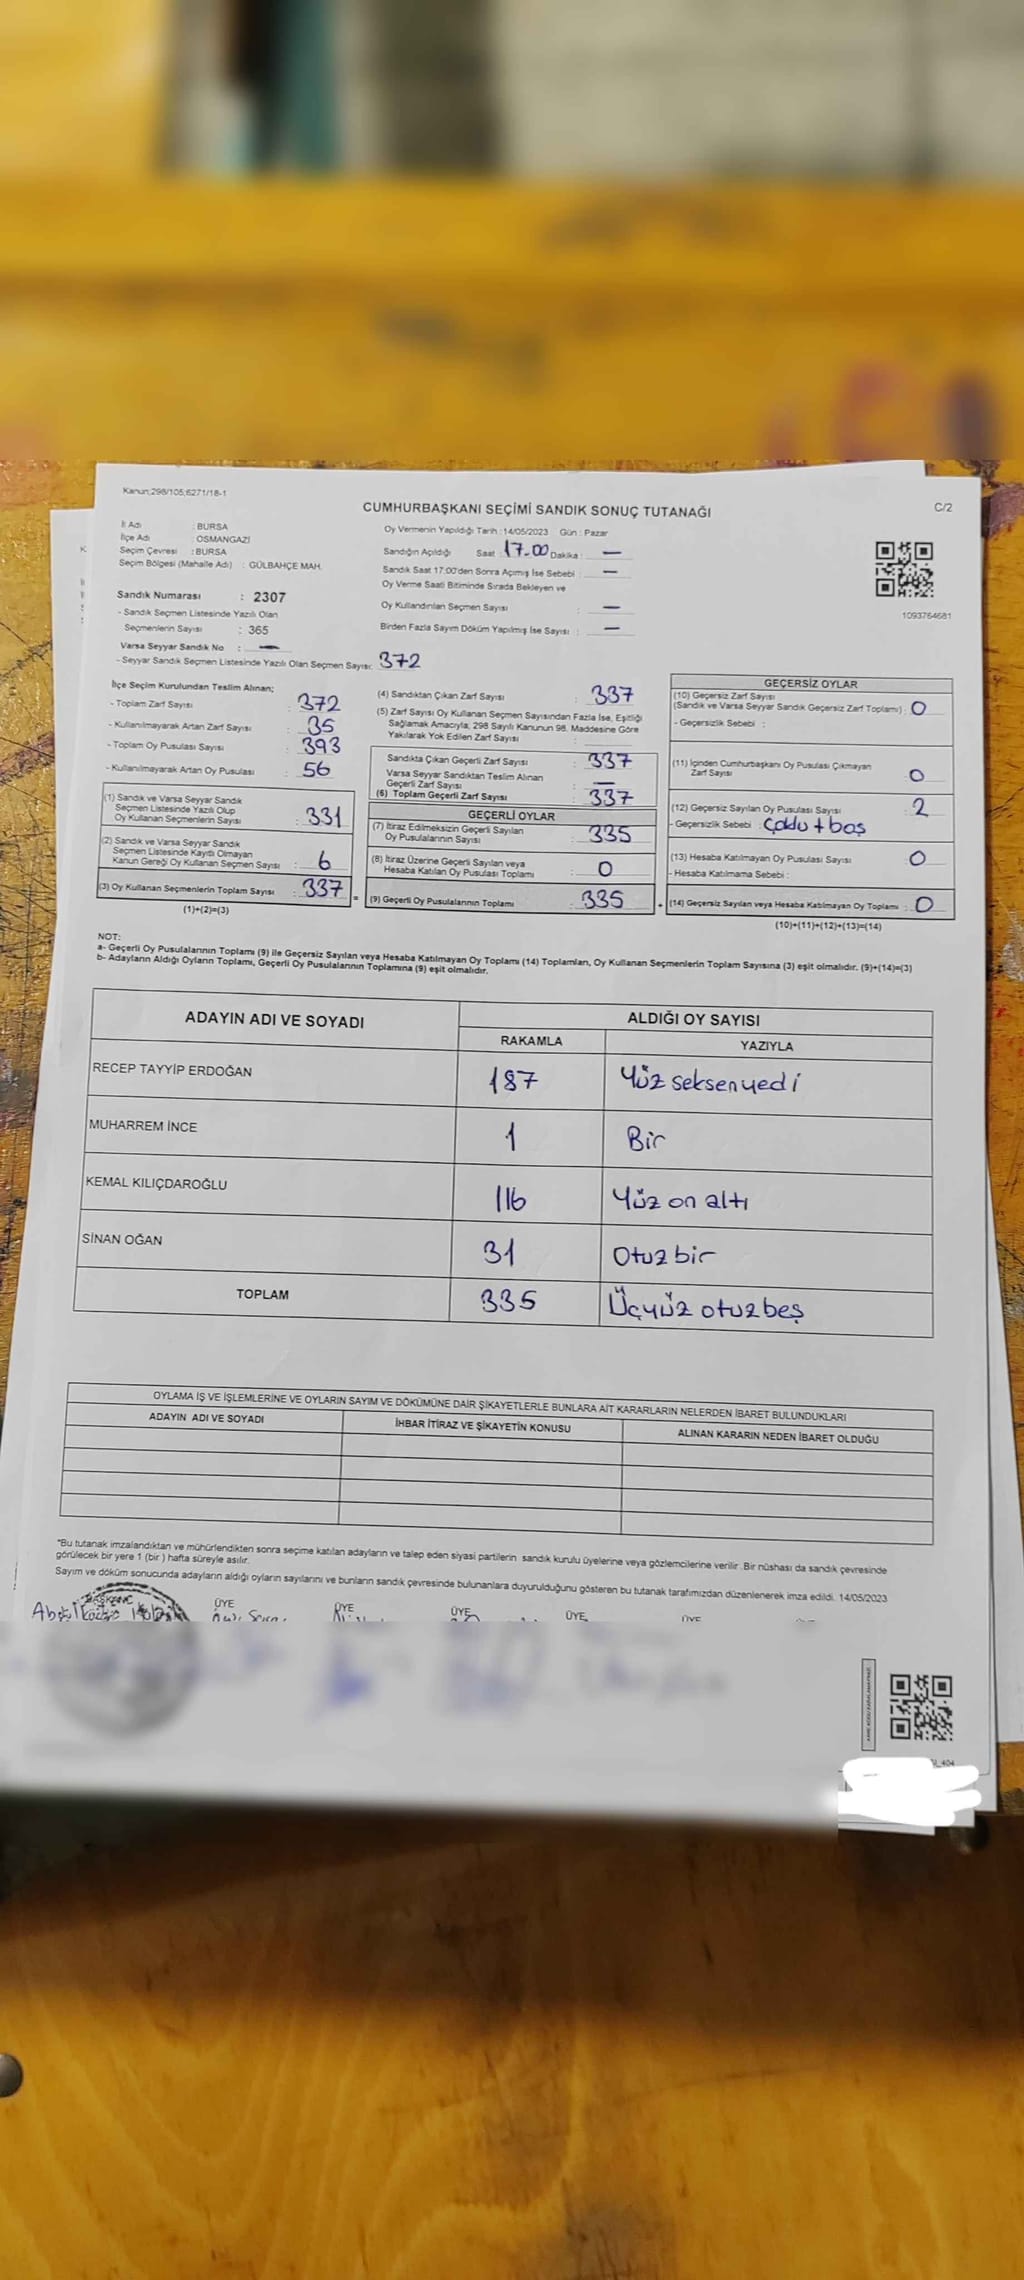 Kanun;298/105;6271/18-1
CUMHURBAŞKANI SEÇİMİ SANDIK SONUÇ TUTANAĞI
C/2
İl Adı : BURSA
İlçe Adı : OSMANGAZİ
Seçim Çevresi : BURSA
Seçim Bölgesi (Mahalle Adı) : GÜLBAHÇE MAH.
Sandık Numarası : 2307
- Sandık Seçmen Listesinde Yazılı Olan
Seçmenlerin Sayısı : 365
Varsa Seyyar Sandık No : —
- Seyyar Sandık Seçmen Listesinde Yazılı Olan Seçmen Sayısı: 372
Oy Vermenin Yapıldığı Tarih : 14/05/2023 Gün : Pazar
Sandığın Açıldığı Saat : 17.00 Dakika : —
Sandık Saat 17:00'den Sonra Açımış İse Sebebi : —
Oy Verme Saati Bitiminde Sırada Bekleyen ve
Oy Kullandırılan Seçmen Sayısı : —
Birden Fazla Sayım Döküm Yapılmış İse Sayısı : —
1093764681
İlçe Seçim Kurulundan Teslim Alınan;
- Toplam Zarf Sayısı : 372
- Kullanılmayarak Artan Zarf Sayısı : 35
- Toplam Oy Pusulası Sayısı : 393
- Kullanılmayarak Artan Oy Pusulası : 56
(1) Sandık ve Varsa Seyyar Sandık
Seçmen Listesinde Yazılı Olup
Oy Kullanan Seçmenlerin Sayısı : 331
(2) Sandık ve Varsa Seyyar Sandık
Seçmen Listesinde Kayıtlı Olmayan
Kanun Gereği Oy Kullanan Seçmen Sayısı : 6
(3) Oy Kullanan Seçmenlerin Toplam Sayısı : 337
(1)+(2)=(3)
(4) Sandıktan Çıkan Zarf Sayısı : 337
(5) Zarf Sayısı Oy Kullanan Seçmen Sayısından Fazla İse, Eşitliği
Sağlamak Amacıyla, 298 Sayılı Kanunun 98. Maddesine Göre
Yakılarak Yok Edilen Zarf Sayısı :
Sandıkta Çıkan Geçerli Zarf Sayısı : 337
Varsa Seyyar Sandıktan Teslim Alınan
Geçerli Zarf Sayısı : —
(6) Toplam Geçerli Zarf Sayısı : 337
=
GEÇERLİ OYLAR
(7) İtiraz Edilmeksizin Geçerli Sayılan
Oy Pusulalarının Sayısı : 335
(8) İtiraz Üzerine Geçerli Sayılan veya
Hesaba Katılan Oy Pusulası Toplamı : 0
(9) Geçerli Oy Pusulalarının Toplamı : 335
+
GEÇERSİZ OYLAR
(10) Geçersiz Zarf Sayısı
(Sandık ve Varsa Seyyar Sandık Geçersiz Zarf Toplamı) : 0
- Geçersizlik Sebebi :
(11) İçinden Cumhurbaşkanı Oy Pusulası Çıkmayan
Zarf Sayısı : 0
(12) Geçersiz Sayılan Oy Pusulası Sayısı : 2
- Geçersizlik Sebebi : Çoklu + boş
(13) Hesaba Katılmayan Oy Pusulası Sayısı : 0
- Hesaba Katılmama Sebebi :
(14) Geçersiz Sayılan veya Hesaba Katılmayan Oy Toplamı : 0
(10)+(11)+(12)+(13)=(14)
NOT:
a- Geçerli Oy Pusulalarının Toplamı (9) ile Geçersiz Sayılan veya Hesaba Katılmayan Oy Toplamı (14) Toplamları, Oy Kullanan Seçmenlerin Toplam Sayısına (3) eşit olmalıdır. (9)+(14)=(3)
b- Adayların Aldığı Oyların Toplamı, Geçerli Oy Pusulalarının Toplamına (9) eşit olmalıdır.
ADAYIN ADI VE SOYADI
ALDIĞI OY SAYISI
RAKAMLA YAZIYLA
RECEP TAYYİP ERDOĞAN 187 Yüz seksen yedi
MUHARREM İNCE 1 Bir
KEMAL KILIÇDAROĞLU 116 Yüz on altı
SİNAN OĞAN 31 Otuz bir
TOPLAM 335 Üçyüz otuz beş
OYLAMA İŞ VE İŞLEMLERİNE VE OYLARIN SAYIM VE DÖKÜMÜNE DAİR ŞİKAYETLERLE BUNLARA AİT KARARLARIN NELERDEN İBARET BULUNDUKLARI
ADAYIN ADI VE SOYADI İHBAR İTİRAZ VE ŞİKAYETİN KONUSU ALINAN KARARIN NEDEN İBARET OLDUĞU
*Bu tutanak imzalandıktan ve mühürlendikten sonra seçime katılan adayların ve talep eden siyasi partilerin sandık kurulu üyelerine veya gözlemcilerine verilir. Bir nüshası da sandık çevresinde
görülecek bir yere 1 (bir ) hafta süreyle asılır.
Sayım ve döküm sonucunda adayların aldığı oyların sayılarını ve bunların sandık çevresinde bulunanlara duyurulduğunu gösteren bu tutanak tarafımızdan düzenlenerek imza edildi. 14/05/2023
BAŞKAN ÜYE ÜYE ÜYE ÜYE ÜYE